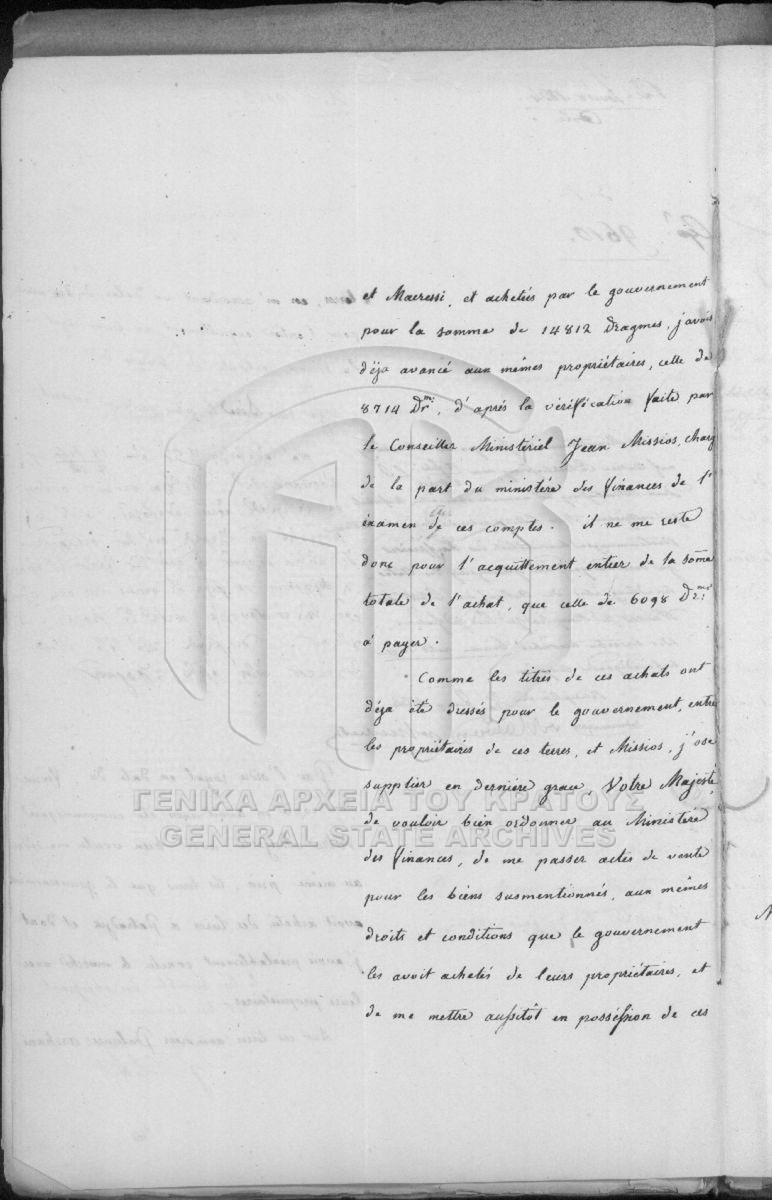 et Macressi, et achetées par le gouvernement
pour la somme de 14812 Dragmes, j'avois
déja avancé aux mêmes propriétaires, celle de
8714 Dr.mes, d'aprés la vérification faite par
le Conseiller Ministériel Jean Missios, charg
de la part du ministére des finances de l'
éxamen de ces comptes. il ne me reste
donc pour l'acquittement entier de la some
totale de l'achat, que celle de 6098 Dr.mes
à payer.
Comme les titres de ces achats ont
déja été dressés pour le gouvernement, entre
les propriétaires de ces terres, et Missios, j'ose
supplier en derniére grace, Votre Majesté,
de vouloir bien ordonner au Ministére
des finances, de me passer actes de vente
pour les biens susmentionnés, aux mêmes
droits et conditions que le gouvernement
les avoit achetés de leurs propriétaires, et
de me mettre aussitôt en posséssion de ces
ΓΕΝΙΚΑ ΑΡΧΕΙΑ ΤΟΥ ΚΡΑΤΟΥΣ
GENERAL STATE ARCHIVES